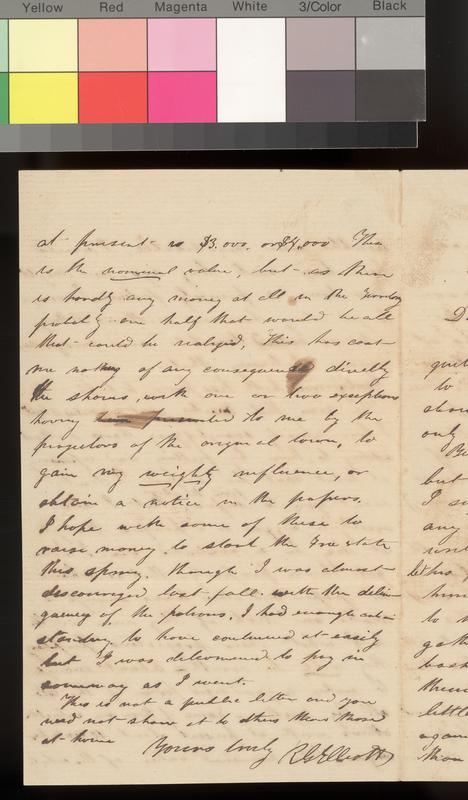 Yellow Red Magenta White 3/Color Black
at present is $3,000, or $4,000 This
is the nominal value, but as there
is hardly any money at all in the Territory
probably one half that would be all
that could be realized, This has cost
me nothing of any consequence directly
the shares, with one or two exceptions
having been presented to me by the
projectors of the original town, to
gain my weighty influence, or
obtain a notice in the papers.
I hope with some of these to
raise money to start the Free State
this spring, though I was almost
discouraged last fall with the delin-
quency of the patrons, I had enough out-
standing to have continued it easily
but I was determined to pay in
as I went.
This is not a public letter and you
need not show it to others than those
at home Yours truly R G Elliott
to
only
but
any
to